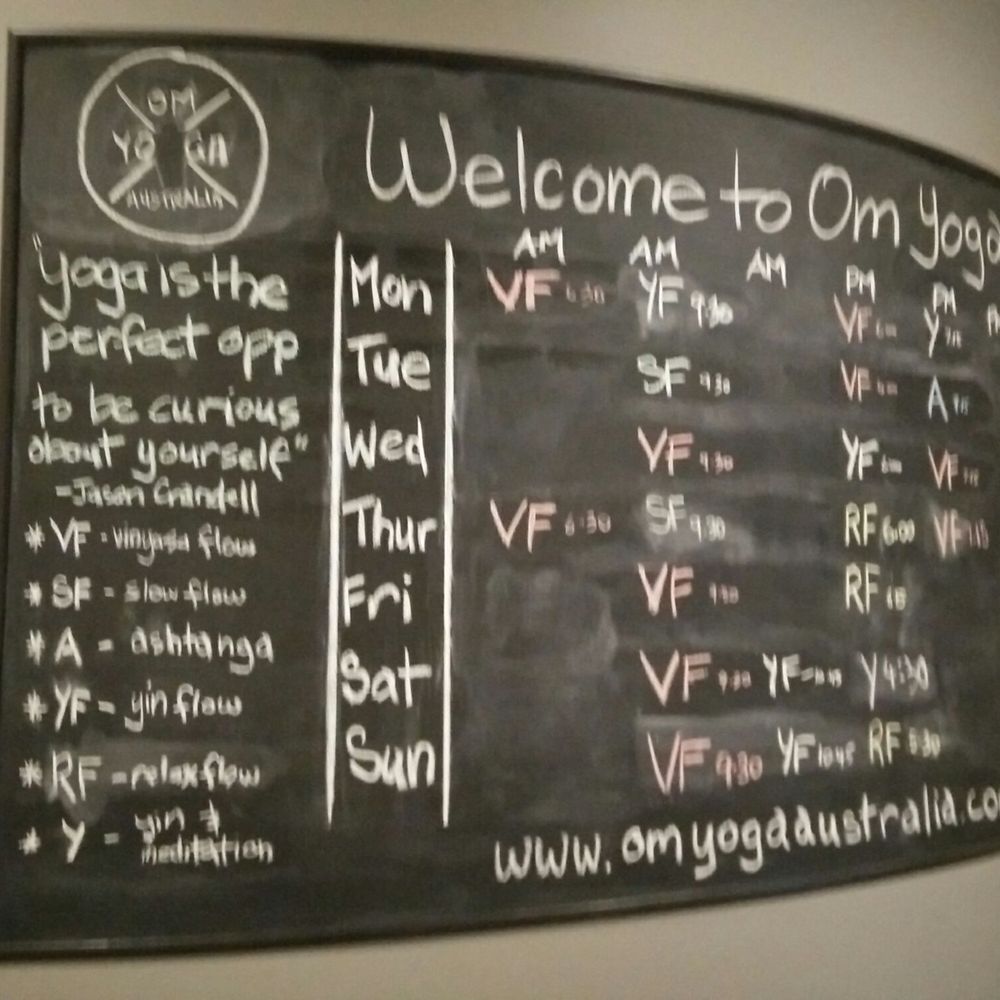 OM
YOGA
AUSTRALIA
Welcome to Om Yoga
"yoga is the
perfect opp
to be curious
about yourself"
-Jason Crandell
* VF - vinyasa flow
* SF - slow flow
* A - ashtanga
* YF - yin flow
* RF - relax flow
* Y - yin &
meditation
AM AM AM PM PM
Mon VF 6:30 YF 9:30 VF Y
Tue SF 9:30 VF A
Wed VF 9:30 YF VF
Thur VF 6:30 SF 9:30 RF 6:00 VF
Fri VF RF
Sat VF 9:30 YF Y 4:30
Sun VF 9:30 YF 10:45 RF 5:30
www.omyogaaustralia.co